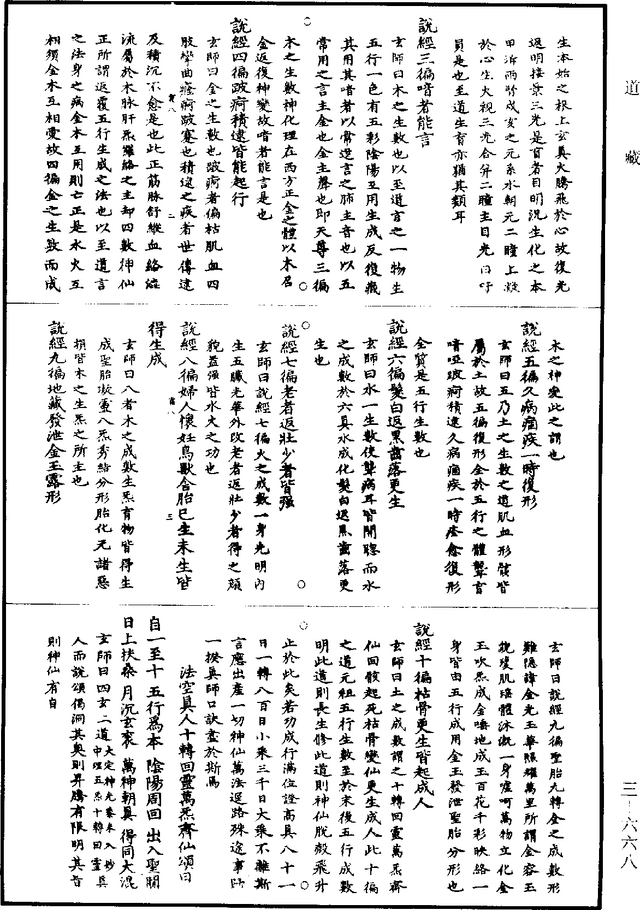 道藏
生本始之根上玄真火騰飛於心故復光
返明接景三光是盲者目明況生化之本
甲沂雨聆成亥之元系水朝元二瞳上凝
於心生火視三光合昇二瞳主目光曰盱
員是也至道生育亦猶其類耳
說經三徧喑者能言
玄師曰木之生數也以至道言之一物生
五行一色有五彩陰陽互用生成反復藏
其用其喑者以常道言之肺主音也以五
常用之言主金也金主聲也即天尊三徧
木之生數神化理在西方正金之體以木召
金返復神變故喑者能言是也
說經四徧跛痾積逮皆能起行
玄師曰金之生數也跛痾者偏枯肌血四
肢攣曲癃痾跛蹇也積逮之疾者世傳逮
及積沉不愈是也此正筋脉舒縱血絡縈
流屬於木脉肝炁羅絡之主却四數神仙
正所謂返覆五行生成之法也以至道言
之法身之病金木互用則亡正是水火互
相須金木互相愛故四徧金之生數而成
木之神變此之謂也
說經五徧久病痼疾一時復形
玄師曰五乃土之生數之道肌血形骸皆
屬於土故五徧復形全於五行之體聾盲
喑啞跛痾積逮久病痼疾一時痊愈復形
全質是五行生數也
說經六徧髮白返黑齒落更生
玄師曰水一生數使聾病耳皆開聰而水
之成數於六真水成化髮白返黑齒落更
生也
說經七徧老者返壯少者皆强
玄師曰說經七徧火之成數一身光明內
生五臟光華外改老者返壯少者得之顔
貌益强皆水火之功也
說經八徧婦人懷妊鳥獸含胎已生未生皆
得生成
玄師曰八者木之成數生炁育物皆得生
成聖胎璇靈八炁秀結分形胎化无諸惡
損皆木之生炁之所主也
說經九徧地藏發泄金玉露形
玄師曰說經九徧聖胎九轉金之成數形
難隱諱金光玉華照耀萬里所謂金容玉
貌瓊肌瑶體沐溉一身噓呵萬物立化金
玉吹炁成金唾地成玉百花千彩映絡一
身皆由五行成用金玉發泄聖胎分形也
說經十徧枯骨更生皆起成人
玄師曰土之成數謂之十轉回靈萬炁齊
仙回骸起死枯骨變仙更生成人此十徧
之道元組五行生數至於末後五行成數
明此道則長生修此道則神仙脫殼飛升
止於此矣若功成行滿位證高真八十一
日一轉八百日小乘三千日大乘不離斯
言應出產一切神仙萬法逕路殊途事師
一揆真師口訣盡於斯焉
法空真人十轉回靈萬炁齊仙頌曰
自一至十五行爲本 陰陽周回 出入聖關
日上扶桑 月沉玄衮 萬神朝真 得同大混
玄師曰四玄二道大定神光乘來入妙真中理五炁十轉回靈具
人而說頌偈洞其奥則昇騰有限明其旨
則神仙有自
三一·六六八